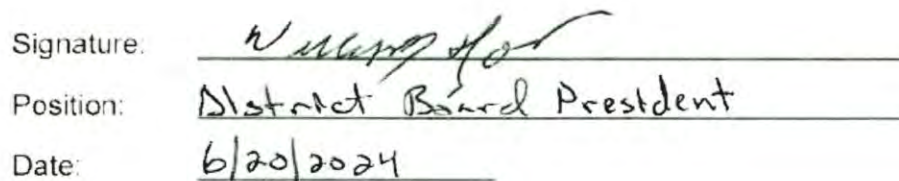 Signature:
Position: District Board President
Date: 6/20/2024